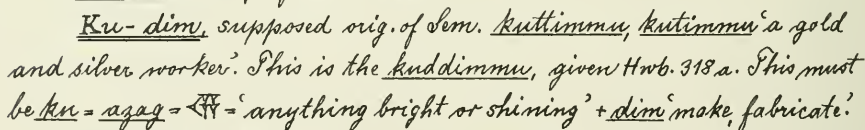 Ku-dim, supposed orig. of Sem. kuttimmu, kutimmu ‘a gold
and silver worker’. This is the kuddimmu, given Hwb. 318a. This must
be ku = azag = = ‘anything bright or shining’ + dim ‘make, fabricate’.